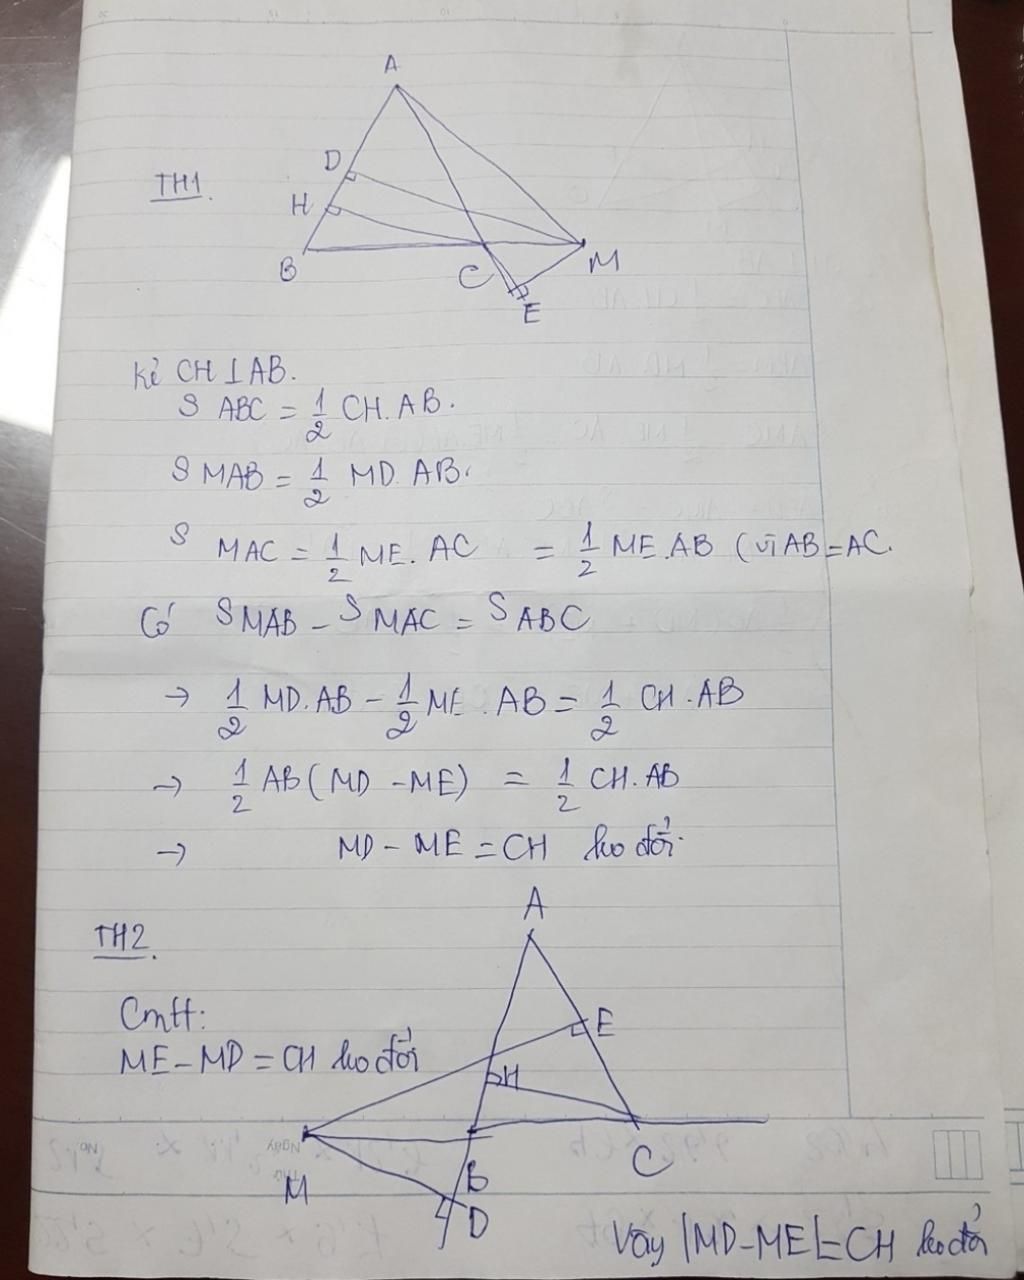 A
TH1.
D
H
B
C
M
E
Kẻ CH⊥AB.
S ABC = 1/2 CH.AB.
S MAB = 1/2 MD.AB.
S MAC = 1/2 ME.AC = 1/2 ME.AB (vì AB=AC.
Có S MAB - S MAC = S ABC
→ 1/2 MD.AB - 1/2 ME.AB = 1/2 CH.AB
→ 1/2 AB(MD - ME) = 1/2 CH.AB
→ MD - ME = CH ko đổi.
A
TH2.
Cmtt:
E
ME - MD = CH ko đổi
H
M
B
C
D
Ngày
Thứ
No
Vậy |MD-ME|=CH ko đổi